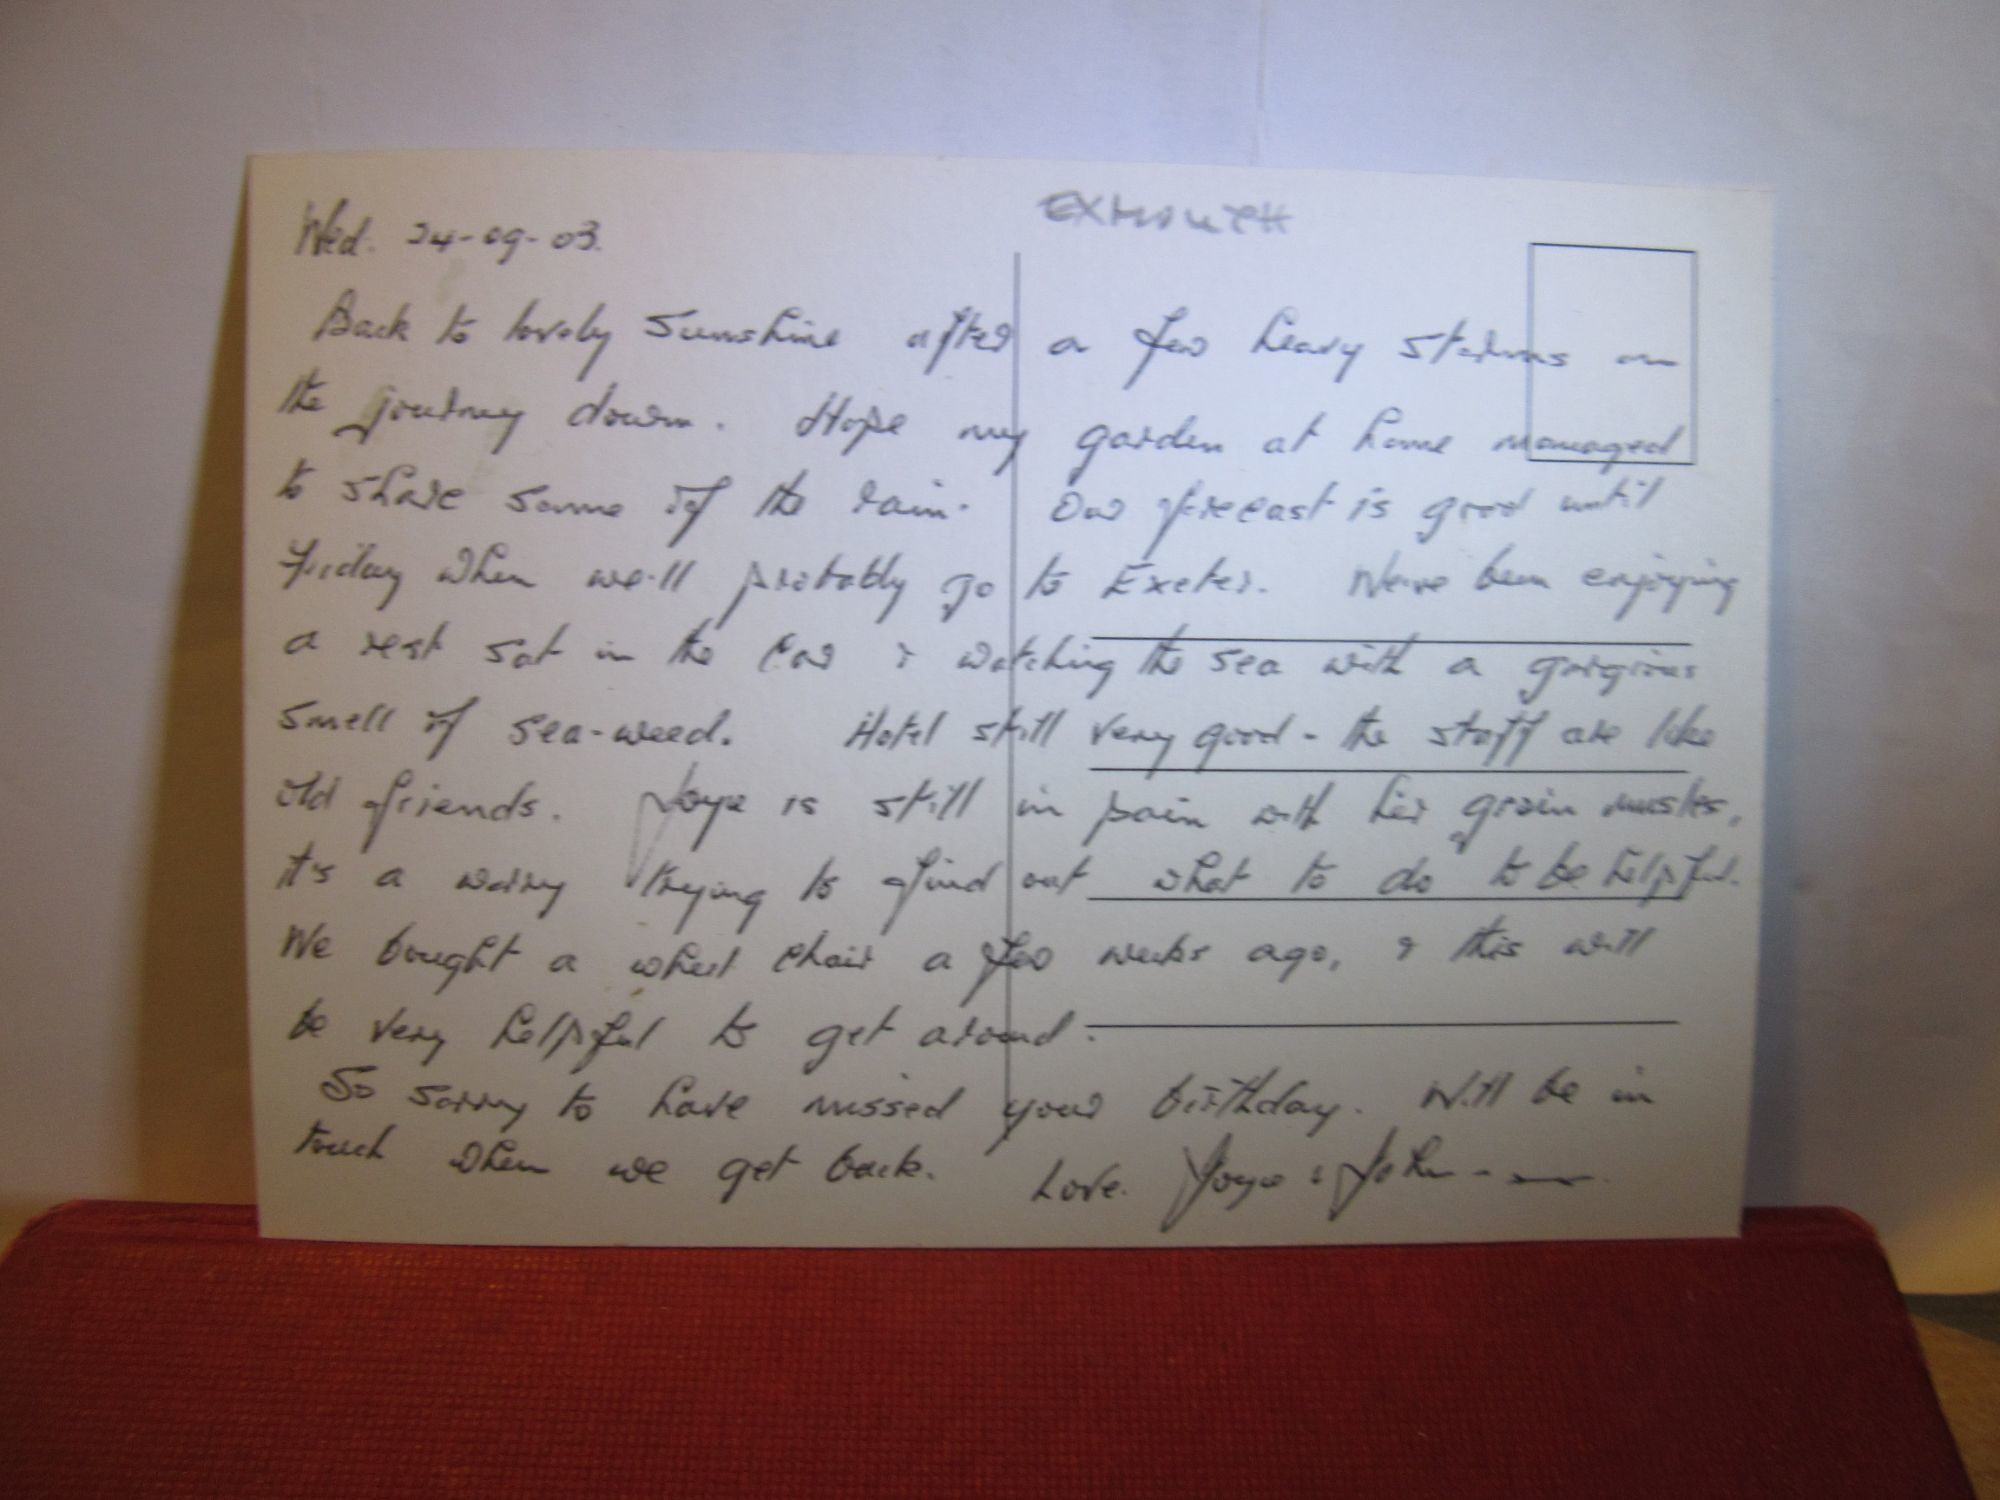 Wed. 24-09-03.
EXMOUTH
Back to lovely sunshine after a few heavy storms on
the journey down. Hope my garden at home managed
to share some of the rain. Our forecast is good until
Friday when we'll probably go to Exeter. We've been enjoying
a rest sat in the car & watching the sea with a gorgious
smell of sea-weed. Hotel still very good - the staff are like
old friends. Joyce is still in pain with her groin muscles,
it's a worry trying to find out what to do to be helpful.
We bought a wheel chair a few weeks ago, & this will
be very helpful to get around.
So sorry to have missed your birthday. Will be in
touch when we get back. Love. Joyce & John